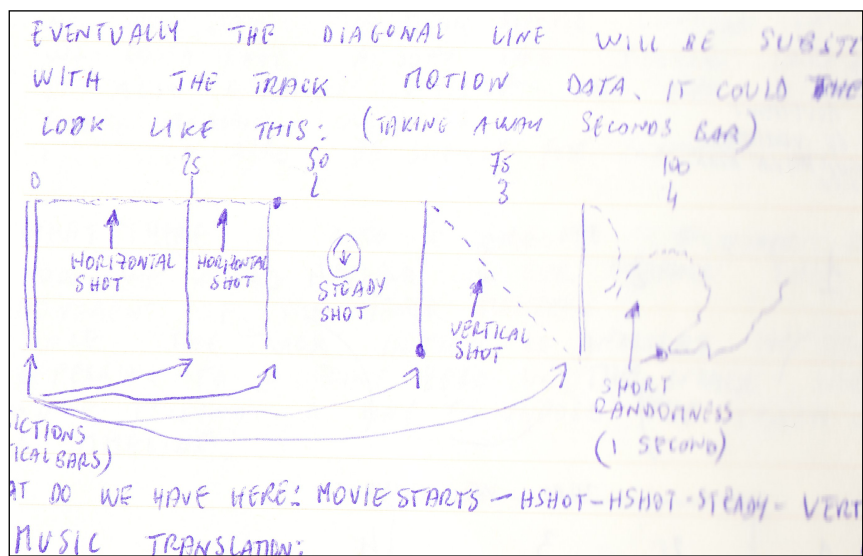 EVENTUALLY THE DIAGONAL LINE WILL BE SUBSTI
WITH THE TRACK MOTION DATA. IT COULD THE
LOOK LIKE THIS: (TAKING AWAY SECONDS BAR)
0 25 50 75 100
1 2 3 4
HORIZONTAL SHOT
HORIZONTAL SHOT
STEADY SHOT
VERTICAL SHOT
SHORT RANDOMNESS (1 SECOND)
ICTIONS
ICAL BARS)
AT DO WE HAVE HERE: MOVIE STARTS - HSHOT - HSHOT - STEADY - VERT
MUSIC TRANSLATION: